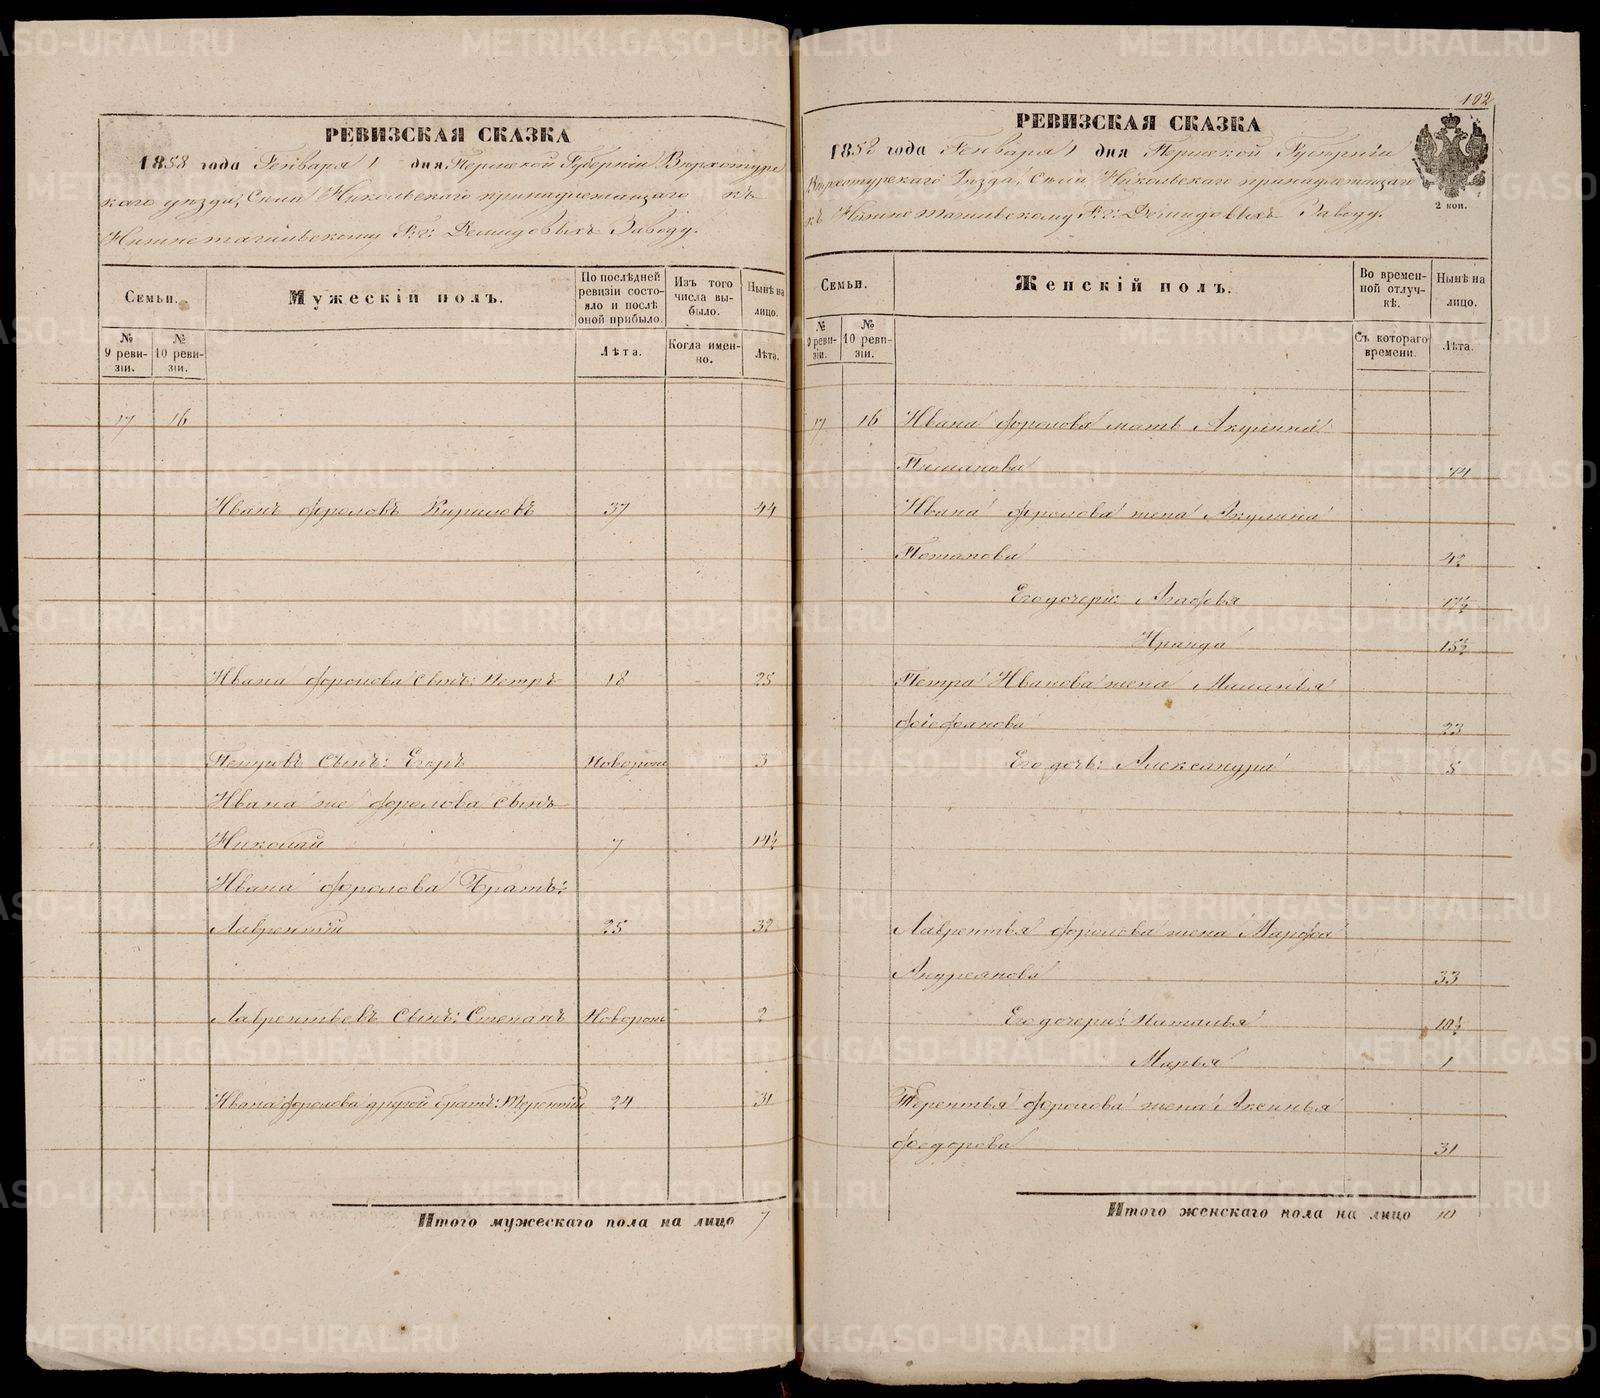 РЕВИЗСКАЯ СКАЗКА
1858 года Генваря 1 дня Пермской Губерніи Верхотурс
каго уѣзда, Села Никольскаго принадлежащаго къ
Нижнетагильскому Гг. Демидовыхъ Заводу.
Семьи.
Мужескій полъ.
По послѣдней ревизіи состояло и послѣ оной прибыло.
Изъ того числа выбыло.
Нынѣ на лицо.
№ 9 ревизіи.
№ 10 ревизіи.
Лѣта.
Когда именно.
Лѣта.
17 16
Иванъ Фроловъ Кириловъ 37 44
Ивана Фролова сынъ: Петръ 18 25
Петровъ сынъ: Егоръ Новорож 3
Ивана же Фролова сынъ
Николай 7 14½
Ивана Фролова Братъ:
Лаврентій 25 32
Лаврентьевъ сынъ: Степанъ Новорож 2
Ивана Фролова другой братъ: Терентій 24 31
Итого мужескаго пола на лицо 7
102
РЕВИЗСКАЯ СКАЗКА
1858 года Генваря 1 дня Пермской Губерніи
Верхотурскаго Уѣзда, Села Никольскаго принадлежащаго
къ Нижнетагильскому Гг. Демидовыхъ Заводу.
2 коп.
Семьи.
Женскій полъ.
Во временной отлучкѣ.
Нынѣ на лицо.
№ 9 ревизіи.
№ 10 ревизіи.
Съ котораго времени.
Лѣта.
17 16 Ивана Фролова мать Акулина
74
Ивана Фролова жена Акулина
Потапова 42
Его дочери: Агафья 17½
15½
Петра Иванова жена Маланья
Фіофанова 23
Его дочь: Александра 5
Лаврентья Фролова жена Марфа
Андреянова 33
Его дочери: Наталья 10½
Марья 1
Терентья Фролова жена Аксинья
Федорова 31
Итого женскаго пола на лицо 10
METRIKI.GASO-URAL.RU